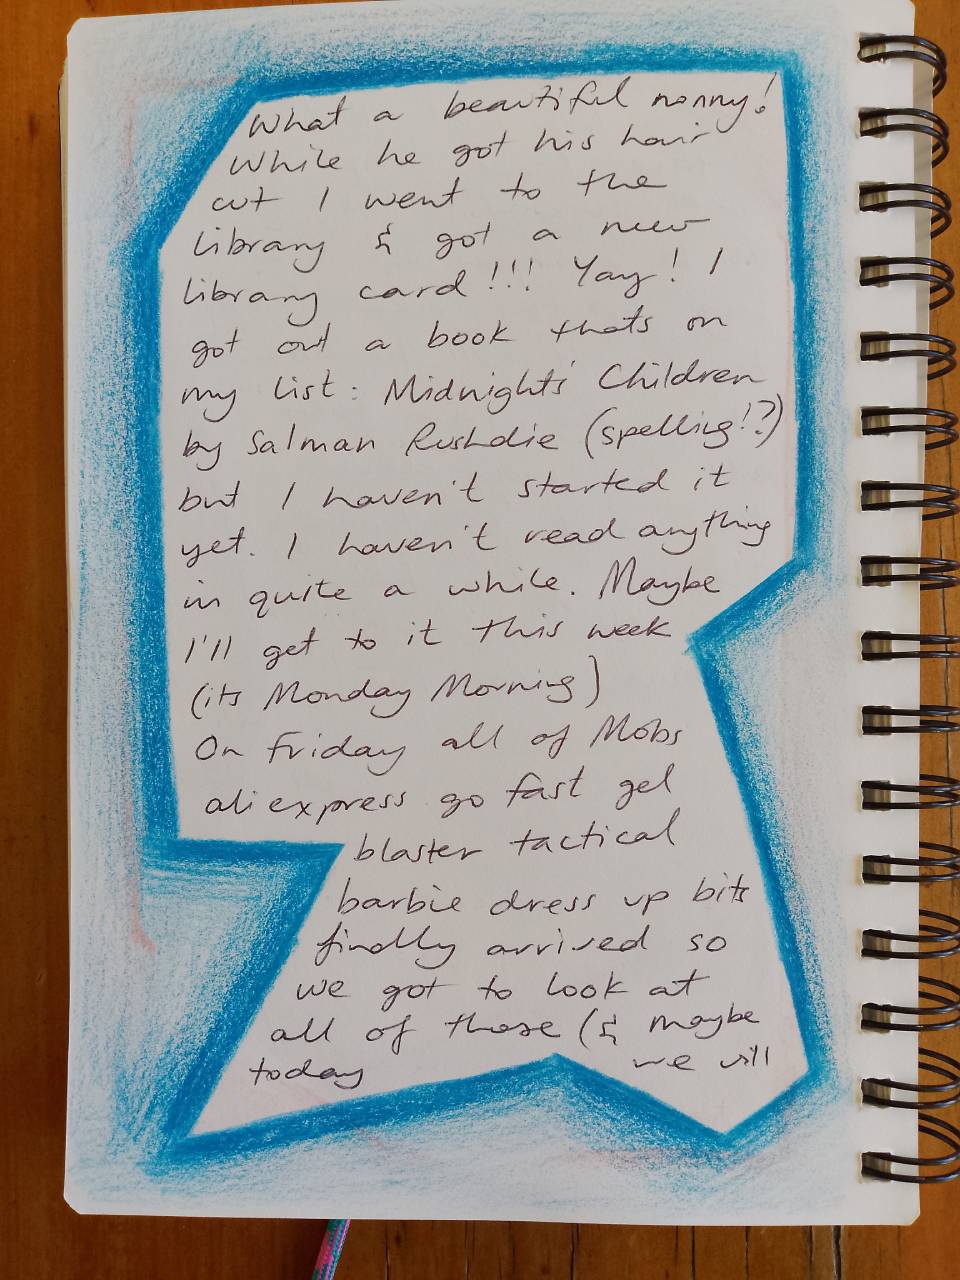 What a beautiful nonny!
While he got his hair
cut I went to the
library & got a new
library card!!! Yay! I
got out a book thats on
my list: Midnights' Children
by Salman Rushdie (spelling!?)
but I haven't started it
yet. I haven't read anything
in quite a while. Maybe
I'll get to it this week
(its Monday Morning)
On Friday all of Mobs
aliexpress go fast gel
blaster tactical
barbie dress up bits
finally arrived so
we got to look at
all of those (& maybe
today we will